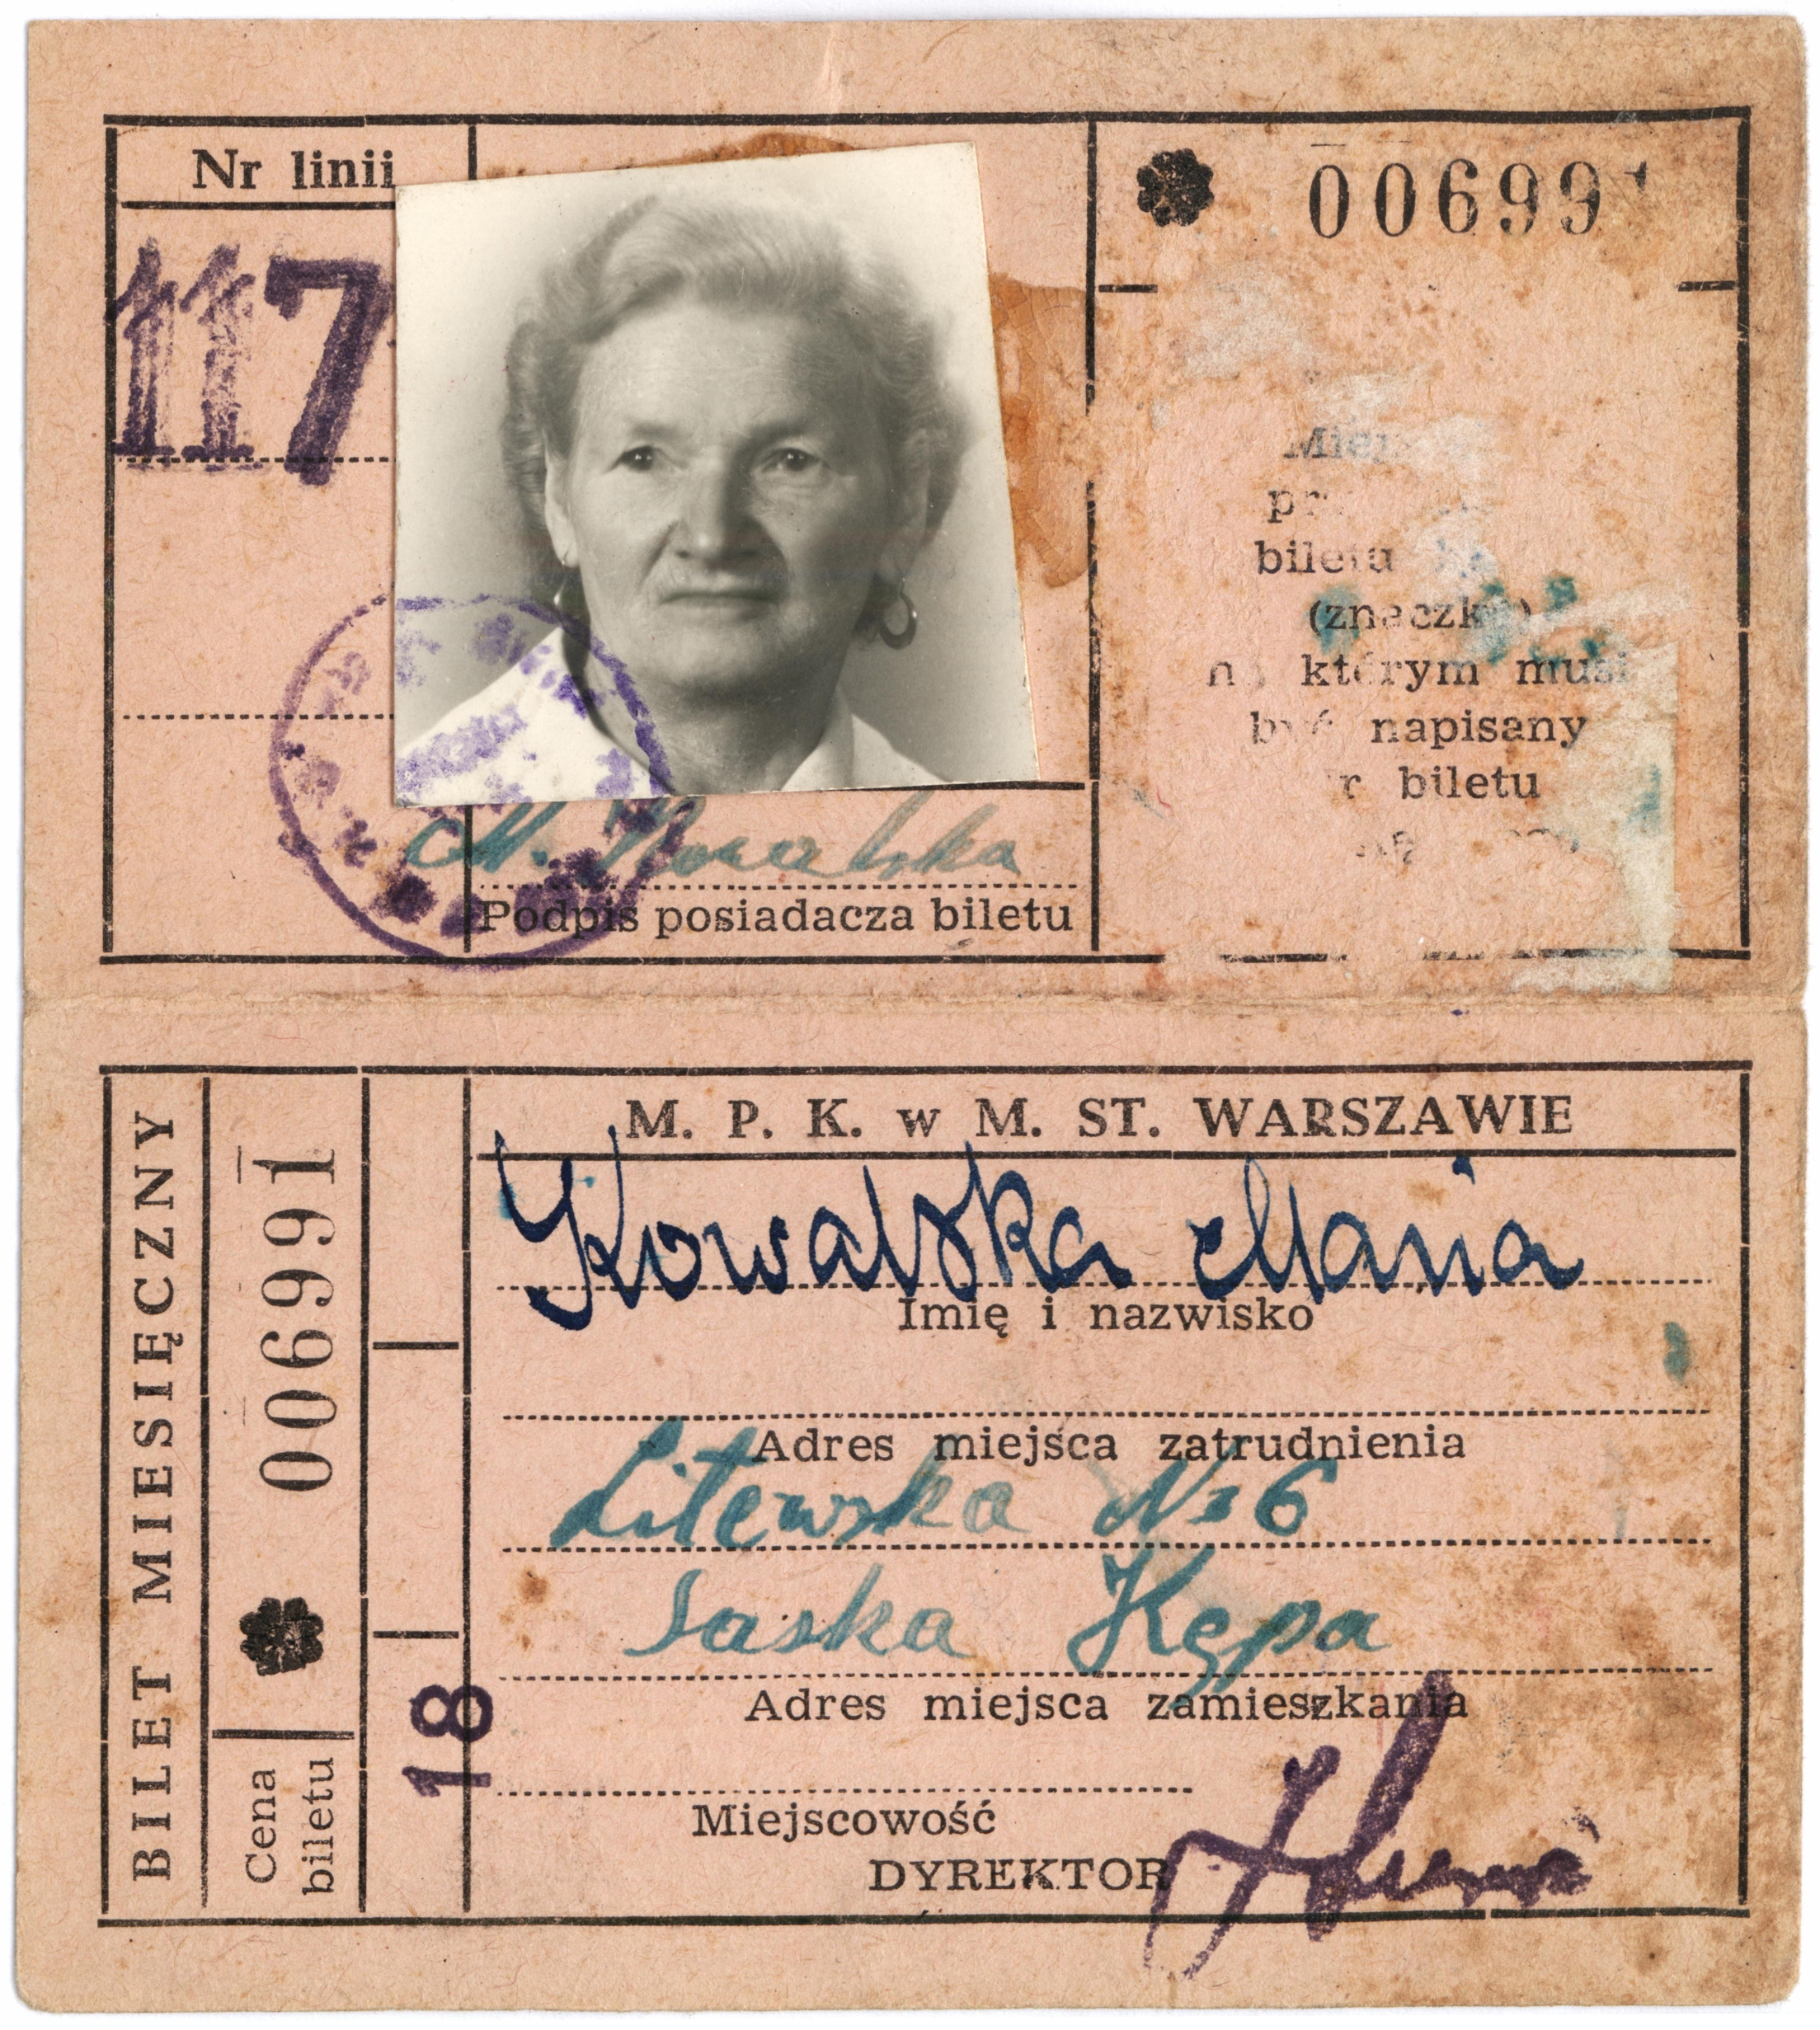 Nr linii
117
006991
biletu
którym musi
być napisany
biletu
M. Kowalska
Podpis posiadacza biletu
BILET MIESIĘCZNY
006991
Cena
biletu
18
M. P. K. w M. ST. WARSZAWIE
Kowalska Maria
Imię i nazwisko
Adres miejsca zatrudnienia
Litewska № 6
Saska Kępa
Adres miejsca zamieszkania
Miejscowość
DYREKTOR